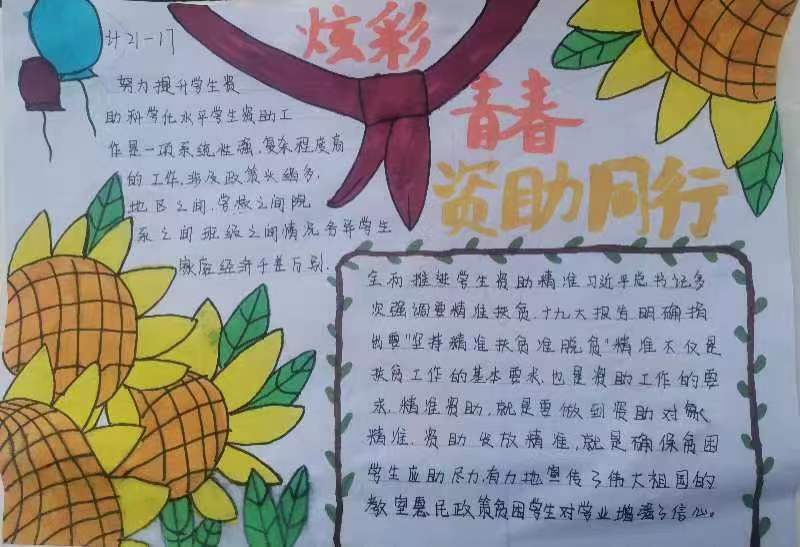 计21-17
炫彩
青春
资助同行
努力提升学生资
助科学化水平学生资助工
作是一项系统性强,复杂程度高
的工作,涉及政策头绪多,
地区之间,学校之间院
系之间班级之间情况多年学生
家庭经济千差万别.
全面推进学生资助精准习近平总书记多
次强调要精准扶贫,十九大报告明确指
出要"坚持精准扶贫准脱贫"精准不仅是
扶贫工作的基本要求,也是资助工作的要
求,精准资助,就是要做到资助对象
精准,资助发放精准,就是确保贫困
学生应助尽力有力地宣传了伟大祖国的
教室惠民政策贫困学生对学业增强了信心。